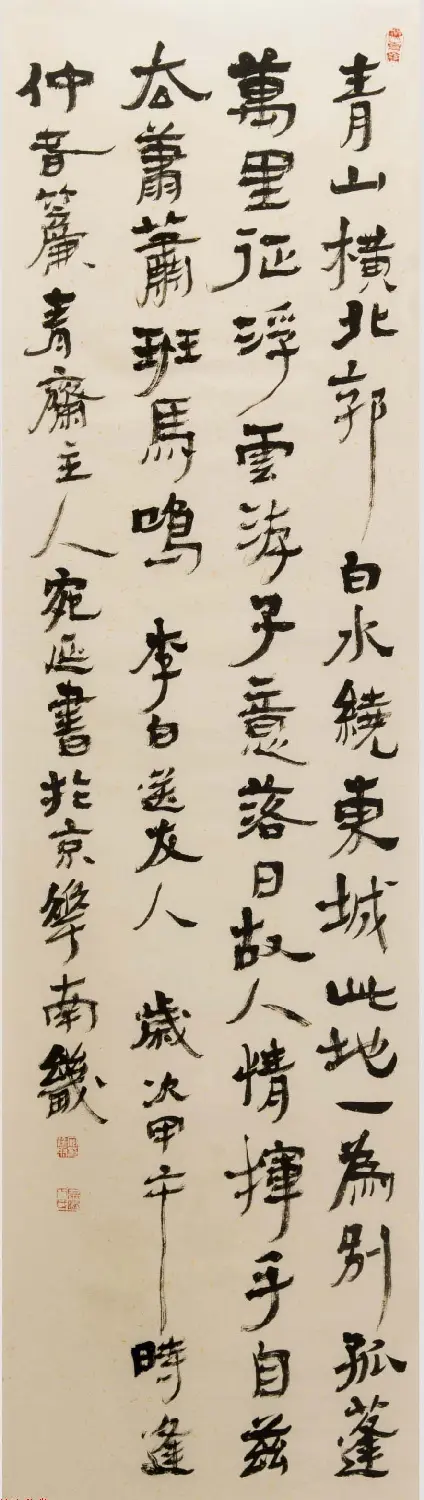 青山橫北郭白水繞東城此地一為別孤蓬
萬里征浮雲游子意落日故人情揮手自茲
去蕭蕭班馬鳴 李白送友人 歲次甲午時逢
仲春簾青齋主人宛延書於京華南畿